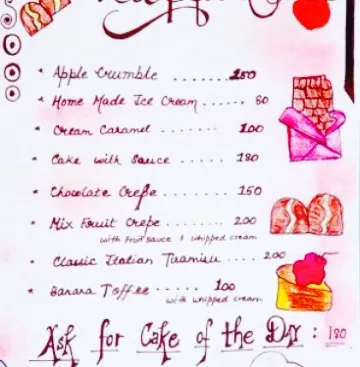 * Apple Crumble ....... 250
* Home Made Ice Cream ...... 80
* Cream Caramel ....... 100
* Cake with Sauce ...... 180
* Chocolate Crepe ...... 150
* Mix Fruit Crepe ....... 200
with Fruit sauce & whipped cream
* Classic Italian Tiramisu .... 200
* Banana Toffee ..... 100
with whipped cream
Ask for Cake of the Day : 180